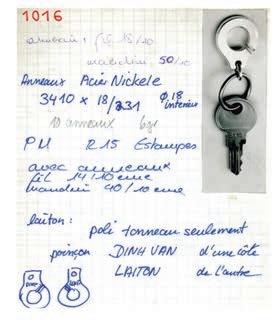 1016
fil 18/10
mandrin 50/10
Anneaux Acier Nickelé
3410 x 18/231 Ø 18 intérieur
10 anneaux 6gr
PM R15 Estampes
avec anneaux
fil 14/10 eme
mandrin 40/10 eme
laiton : poli tonneau seulement
poinçon DINH VAN d'une côté
LAITON de l'autre